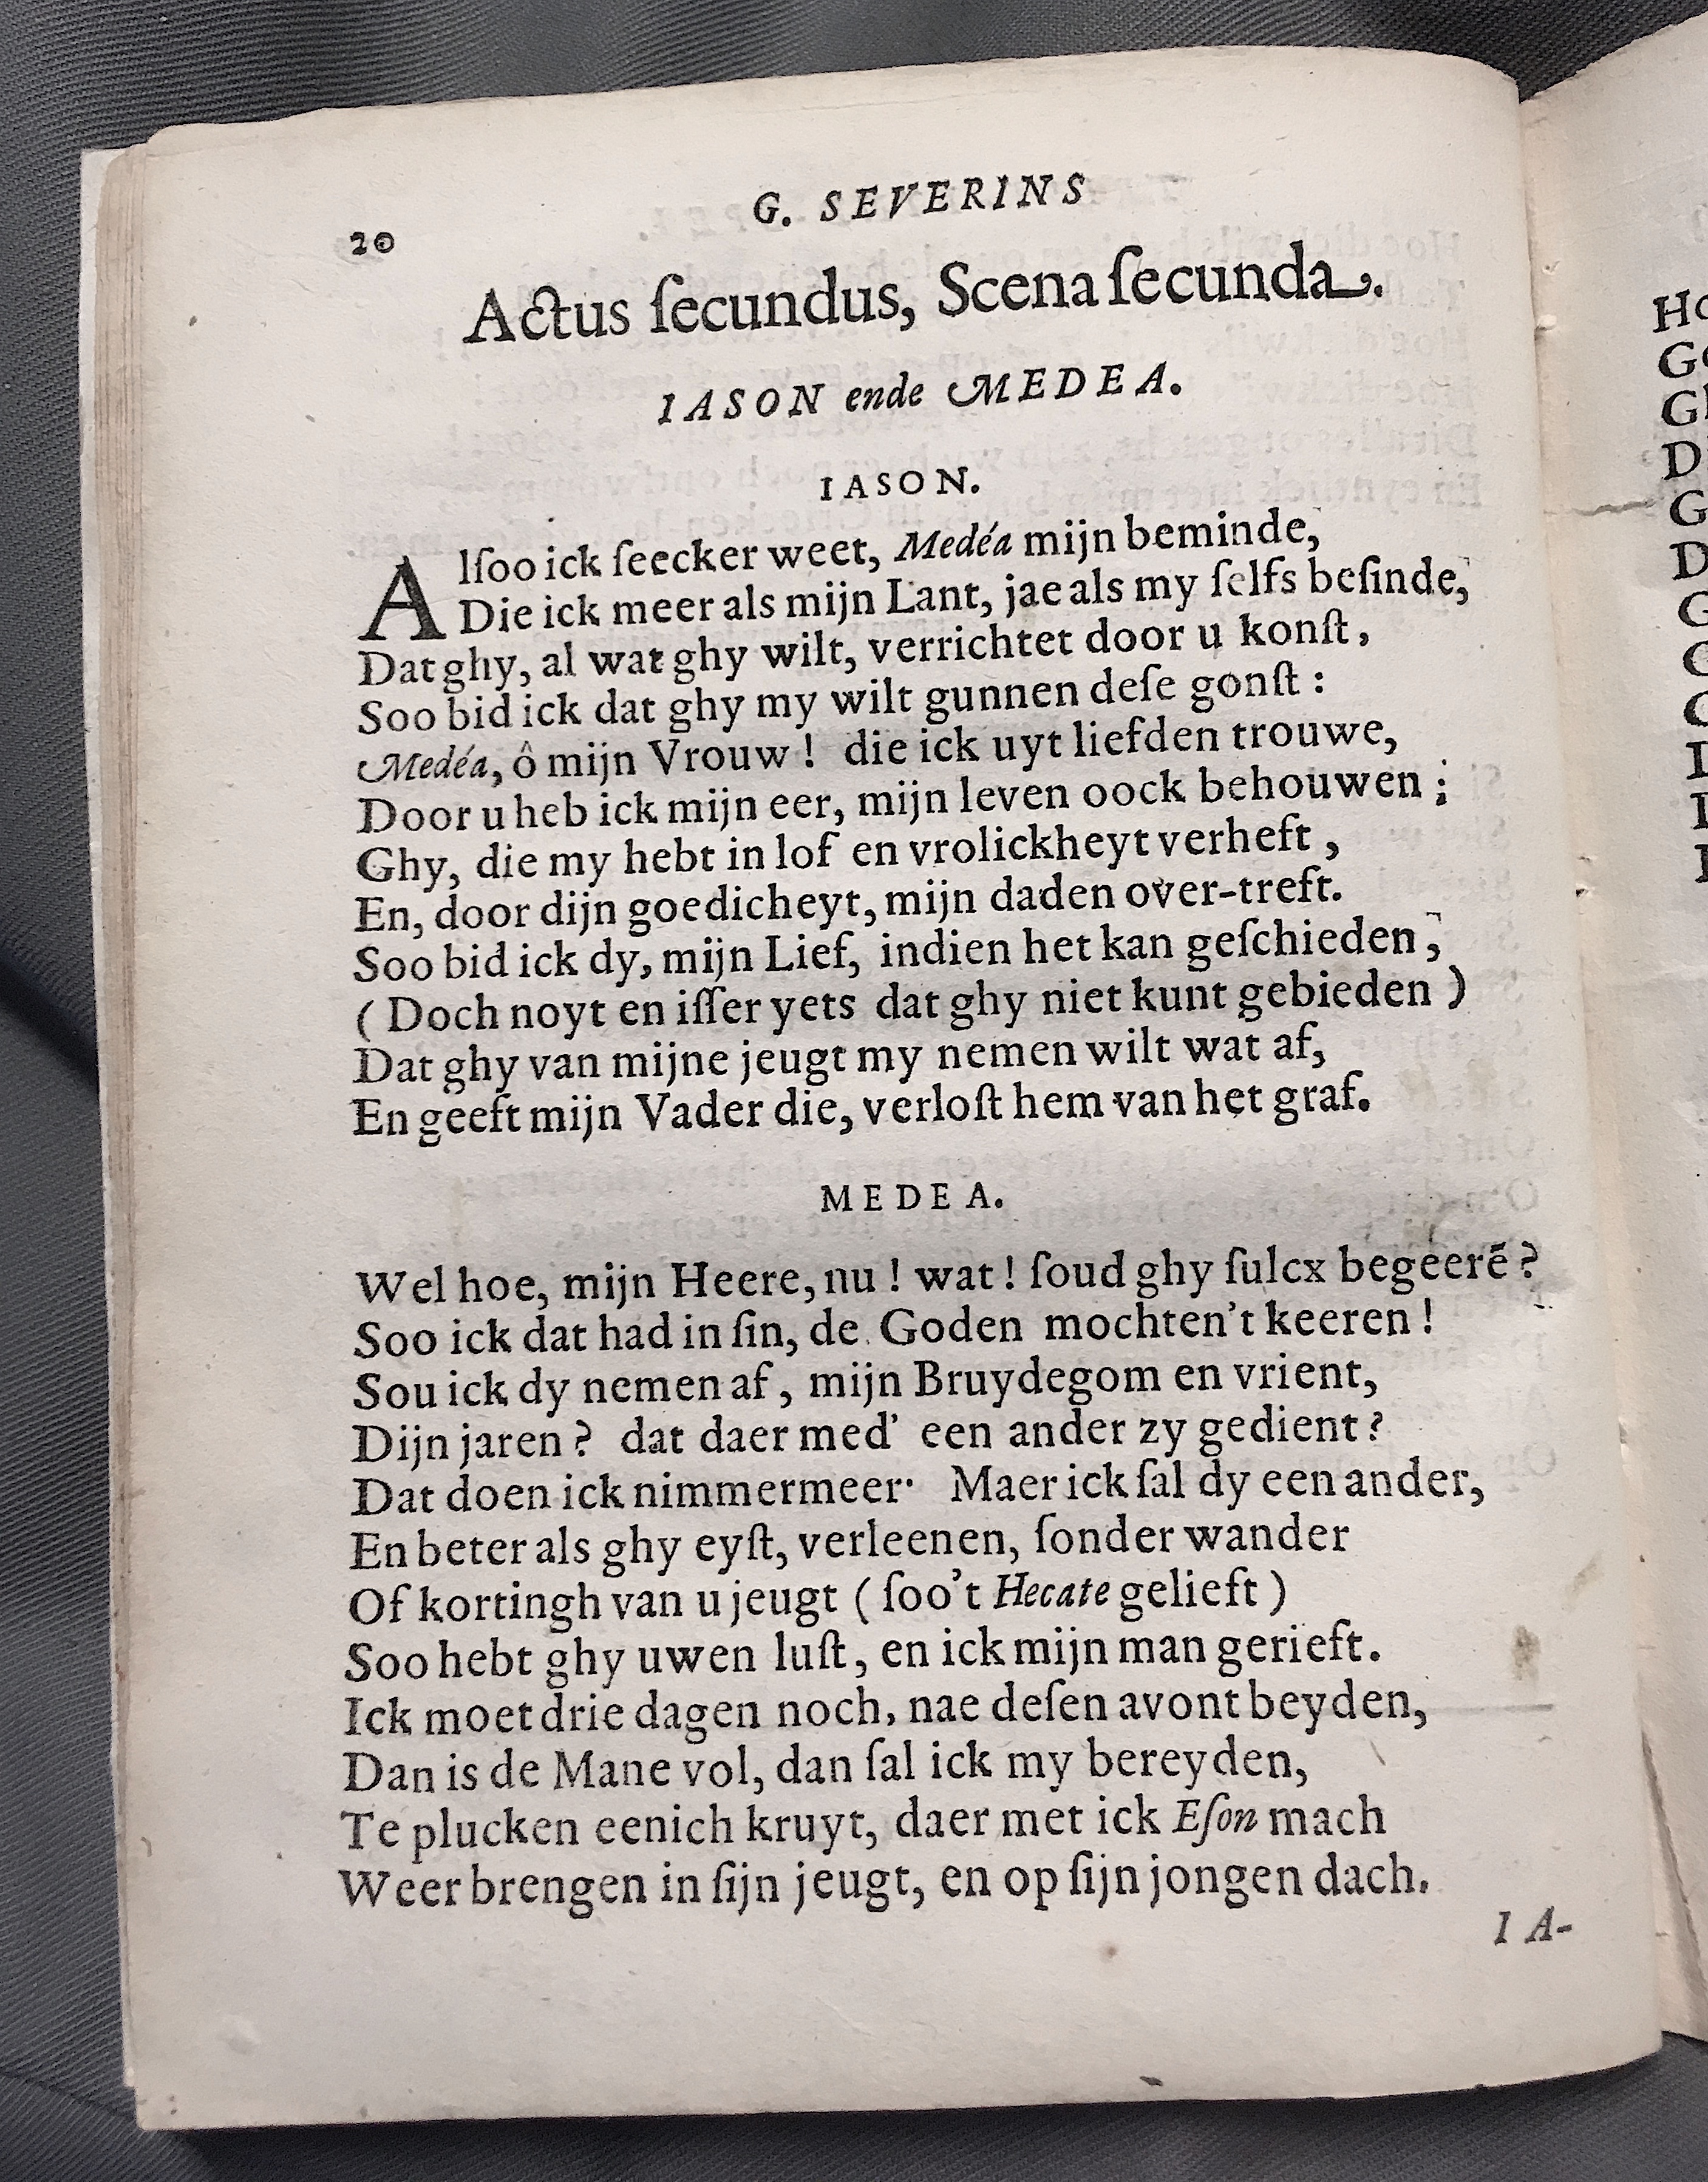 G. SEVERINS
20
Actus ſecundus, Scena ſecunda.
IASON ende MEDEA.
IASON.
Alſoo ick ſeecker weet, Medéa mijn beminde,
Die ick meer als mijn Lant, jae als my ſelfs beſinde,
Dat ghy, al wat ghy wilt, verrichtet door u konſt,
Soo bid ick dat ghy my wilt gunnen deſe gonſt :
Medéa, ô mijn Vrouw ! die ick uyt liefden trouwe,
Door u heb ick mijn eer, mijn leven oock behouwen ;
Ghy, die my hebt in lof en vrolickheyt verheft ,
En, door dijn goedicheyt, mijn daden over-treft.
Soo bid ick dy, mijn Lief, indien het kan geſchieden,
( Doch noyt en iſſer yets dat ghy niet kunt gebieden )
Dat ghy van mijne jeugt my nemen wilt wat af,
En geeft mijn Vader die, verloſt hem van het graf.
MEDEA.
Wel hoe, mijn Heere, nu ! wat ! ſoud ghy ſulcx begeerē ?
Soo ick dat had in ſin, de Goden mochten't keeren !
Sou ick dy nemen af , mijn Bruydegom en vrient,
Dijn jaren ? dat daer med' een ander zy gedient ?
Dat doen ick nimmermeer· Maer ick ſal dy een ander,
En beter als ghy eyſt, verleenen, ſonder wander
Of kortingh van u jeugt ( ſoo't Hecate gelieft )
Soo hebt ghy uwen luſt, en ick mijn man gerieft.
Ick moet drie dagen noch, nae deſen avont beyden,
Dan is de Mane vol, dan ſal ick my bereyden,
Te plucken eenich kruyt, daer met ick Eſon mach
Weer brengen in ſijn jeugt, en op ſijn jongen dach.
I A-
Ho
G
D
G
D
G